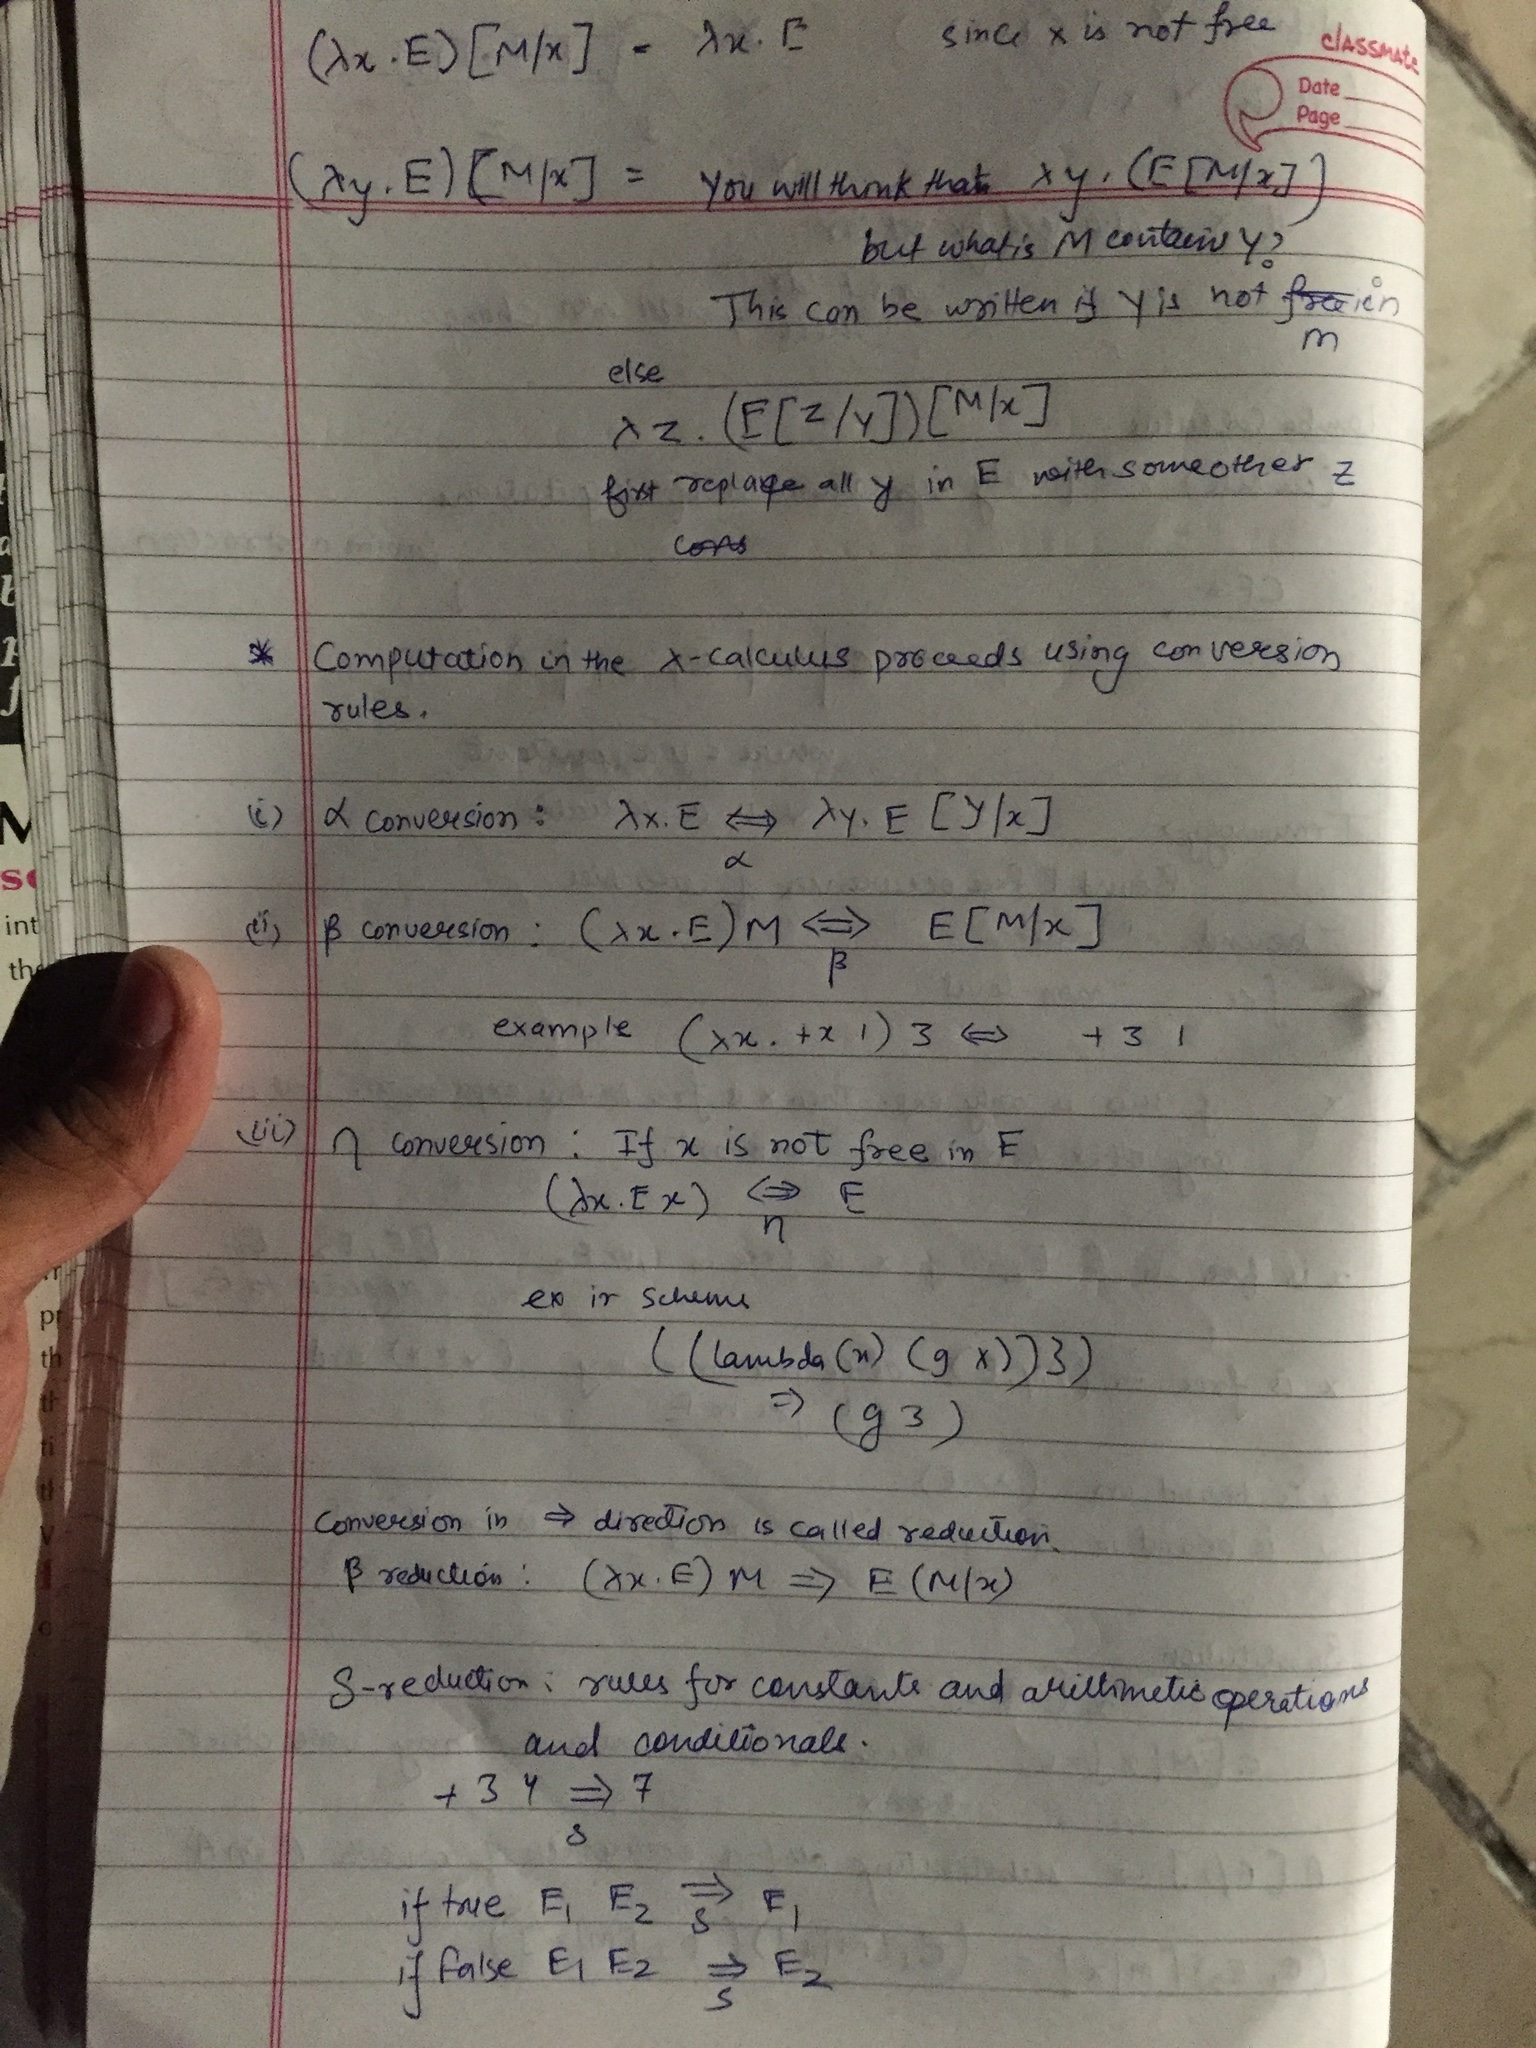 (λx.E)[M/x] = λx.E since x is not free
classmate
Date
Page
(λy.E)[M/x] = You will think that λy.(E[M/x])
but what is M contain y?
This can be written if y is not free in
m
else
λz.(E[z/y])[M/x]
first replace all y in E with some other z
cons
* Computation in the λ-calculus proceeds using conversion
rules.
(i) α conversion: λx.E ⇔ λy.E [y/x]
α
(ii) β conversion: (λx.E)M ⇔ E[M/x]
β
example (λx.+x 1) 3 ⇔ + 3 1
(iii) η conversion: If x is not free in E
(λx.Ex) ⇔ E
η
ex in scheme
((lambda(x) (g x))3)
⇒ (g 3)
Conversion in ⇒ direction is called reduction.
β reduction: (λx.E) M ⇒ E(M/x)
δ-reduction: rules for constants and arithmetic operations
and conditionals.
+ 3 4 ⇒ 7
δ
if true E1 E2 ⇒ E1
δ
if false E1 E2 ⇒ E2
δ
M
int
pr
th